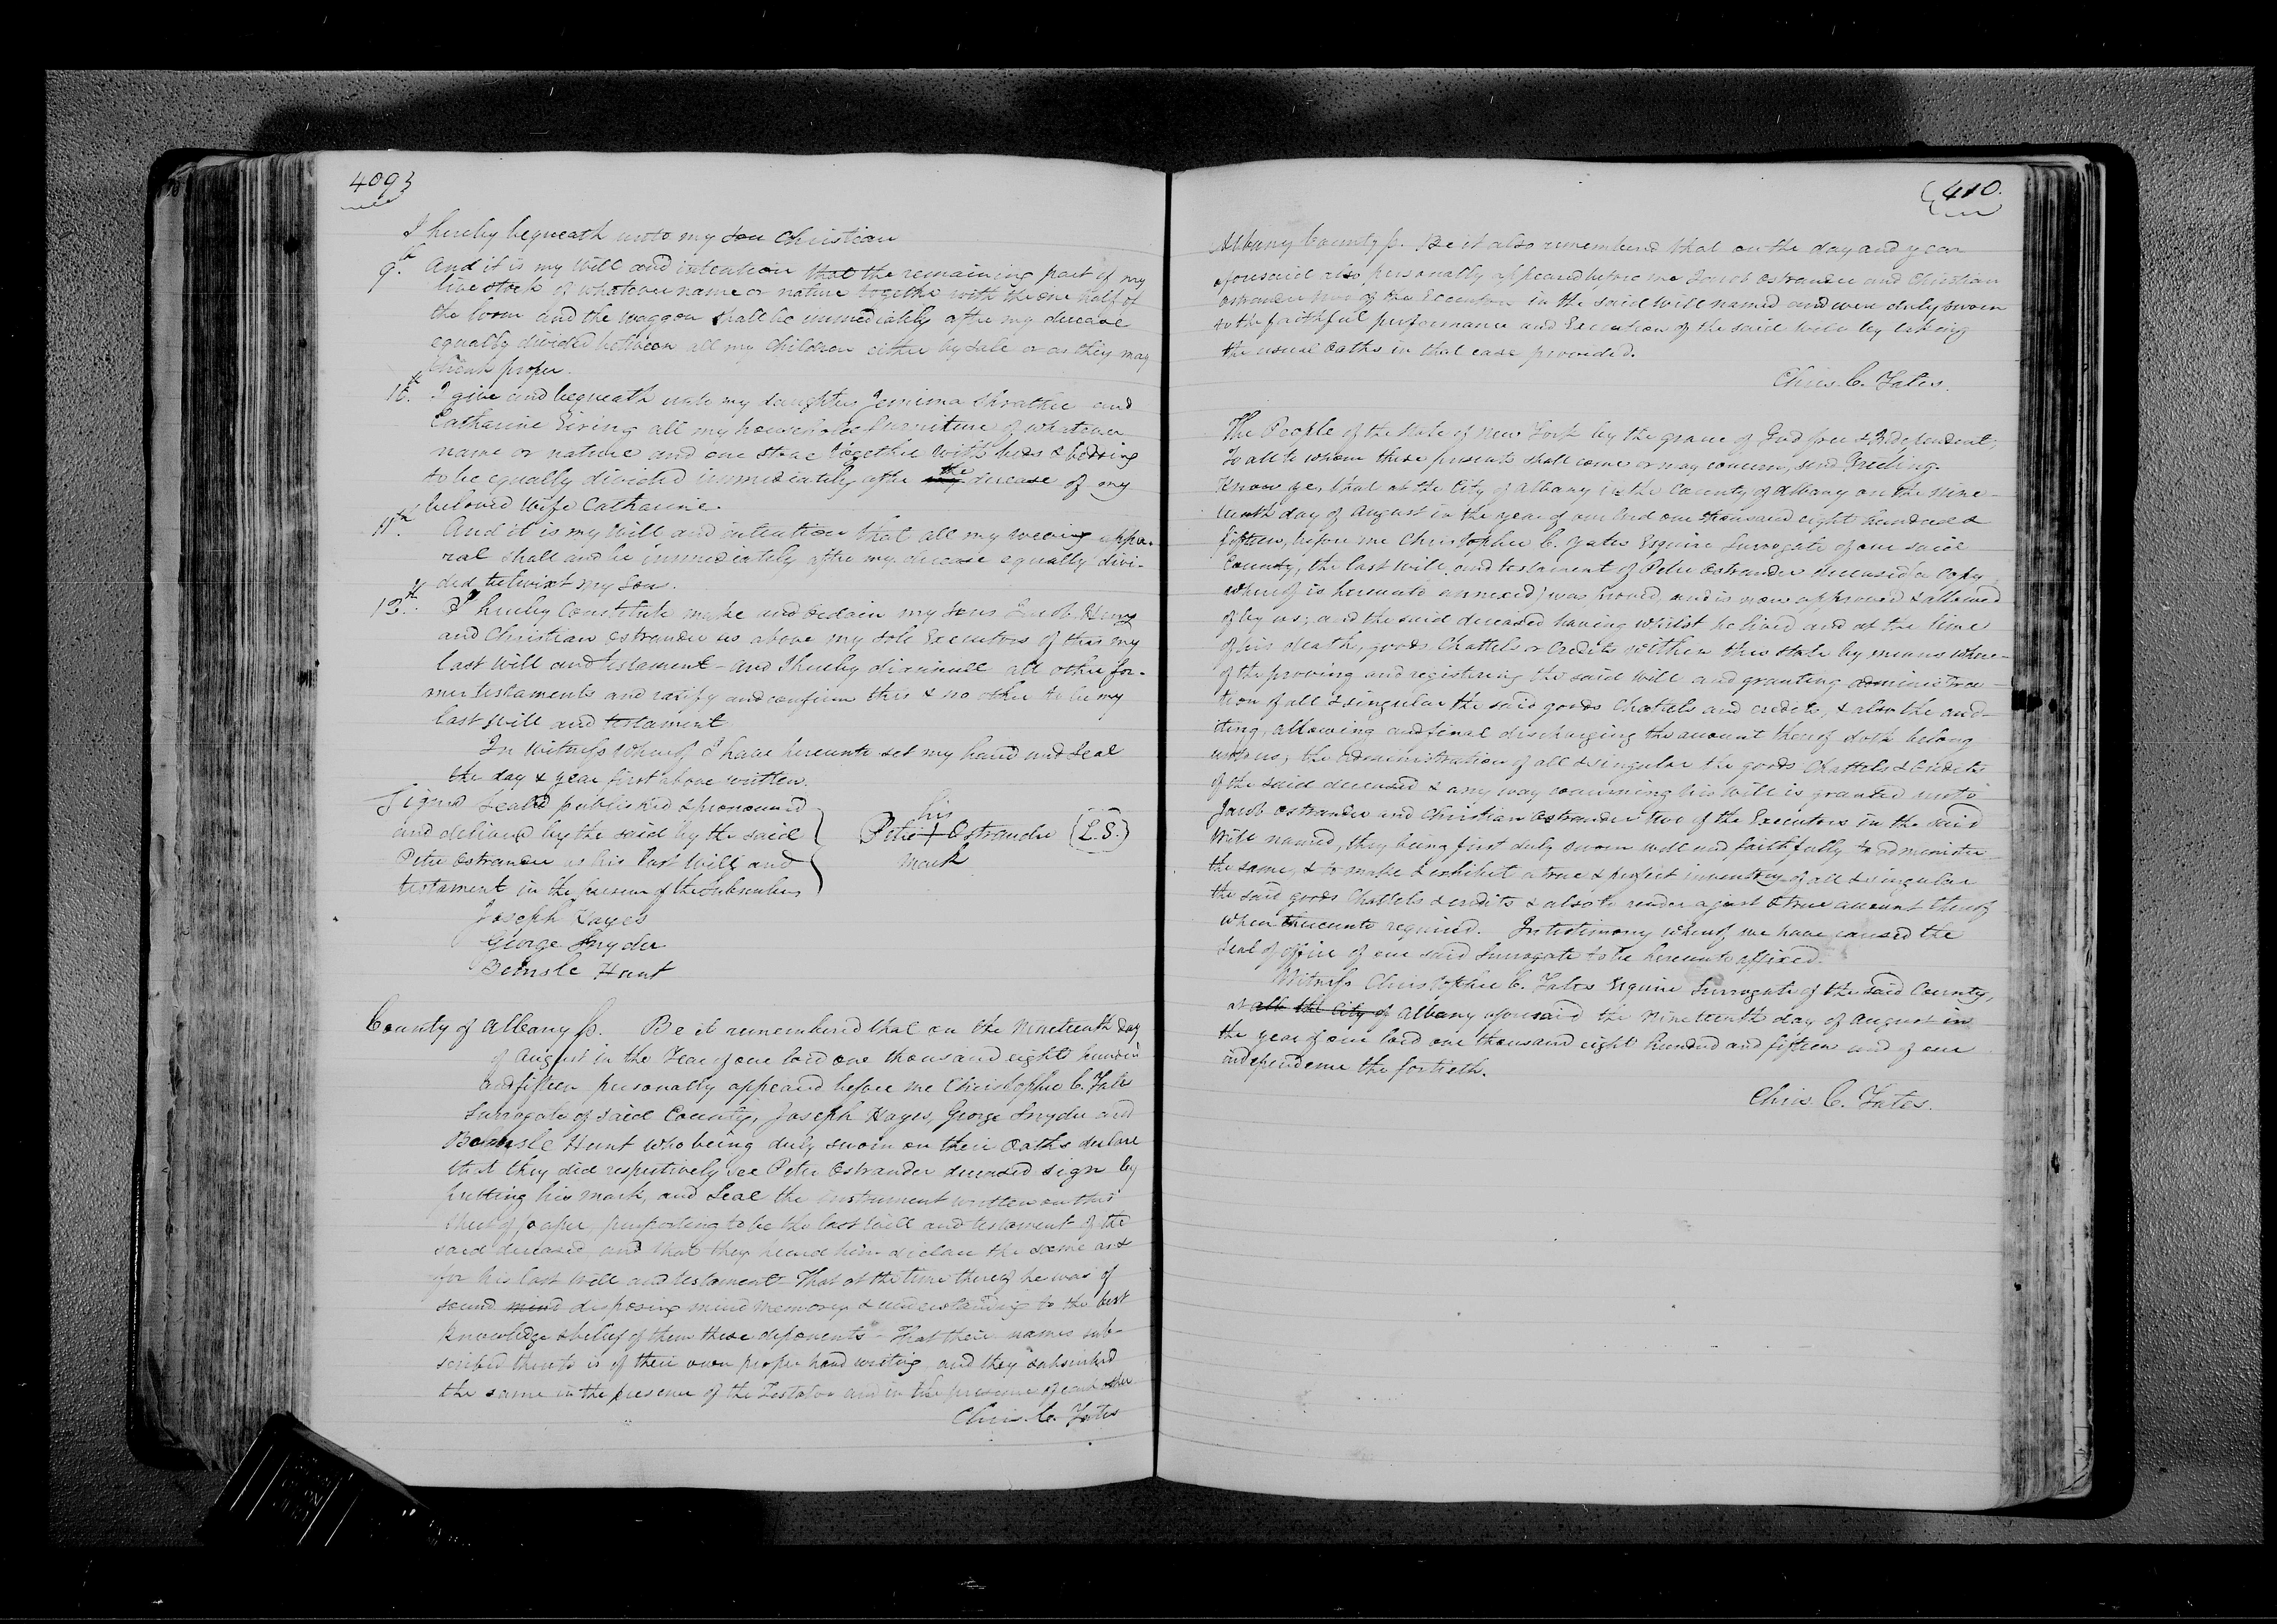 409}
I hereby bequeath unto my son Christian
9th. And it is my will and intention that the remaining part of my
live stock of whatever name or nature together with the one half of
the loom and the waggon shall be immediately after my decease
equally divided between all my children either by sale or as they may
think proper.
10th. I give and bequeath unto my daughters Jemima and
Catharine all my household furniture of whatever
name or nature and one stove together with beds & bedding
to be equally divided immediately after my the decease of my
beloved wife Catharine.
11th. And it is my will and intention that all my wearing appa-
ral shall and be immediately after my decease equally divi-
ded betwixt my son.
13th. & I hereby Constitute make and ordain my sons Jacob Henry
and Christian Ostrander as above my sole Executors of this my
last will and testament - and I hereby disannull all other for-
mer testaments and ratify and confirm this & no other to be my
last will and testament
In Witness Whereof I have hereunto set my hand and Seal
the day & year first above written.
Signed Sealed published & pronounced
and delivered by the said by the said
Peter Ostrander as his last Will and
testament in the presence of the Subscribers
his
Peter + Ostrander (L.S.)
mark
Joseph Hayes
George Snyder
Hunt
County of Albany ss. Be it remembered that on the Nineteenth day
of August in the Year of our lord one thousand eight hundred
and fifteen personally appeared before me Christopher C. Yates
Surrogate of said County, Joseph Hayes, George Snyder and
Hunt who being duly sworn on their Oaths declare
that they did respectively see Peter Ostrander deceased sign by
putting his mark, and Seal the instrument written on this
sheet of paper, purporting to be the last will and testament of the
said deceased and that they heard him declare the same as &
for his last will and testament That at the time thereof he was of
sound mind disposing mind memory & understanding to the best
knowledge & belief of them these deponents - That their names sub-
scribed thereto is of their own proper hand writing, and they subscribed
the same in the presence of the Testator and in the presence of each other
Chris. C. Yates
{410.
Albany County ss. Be it also remembered that on the day and year
aforesaid also, personally appeared before me Jacob Ostrander and Christian
Ostrander two of the Executors in the said will named and were duly sworn
to the faithful performance and Execution of the said will by taking
the usual Oaths in that case provided.
Chris. C. Yates.
The People of the State of New York by the grace of God free & Independent;
To all to whom these presents shall come or may concern, send Greeting.
Know ye, that at the City of Albany in the County of Albany on the nine-
teenth day of August in the year of our lord one thousand eight hundred &
fifteen, before me Christopher C. Yates Esquire Surrogate of our said
County, the last will and testament of Peter Ostrander deceased (a Copy
whereof is hereunto annexed) was proved and is now approved & allowed
of by us; and the said deceased having whilst he lived and at the time
of his death, goods, Chattels or Credits within this State by means where-
of the proving and registering the said will and granting administra-
tion of all & singular the said goods Chattels and credits, & also the aud-
iting, allowing and final discharging the account thereof doth belong
unto us; the administration of all & singular the goods Chattels & Credits
of the said deceased & any way concerning his will is granted unto
Jacob Ostrander and Christian Ostrander two of the Executors in the said
will named, they being first duly sworn well and faithfully to administer
the same, & to make & exhibit a true & perfect inventory of all & singular
the said goods Chattels & credits & also to render a just & true account thereof
when thereunto required. In testimony whereof we have caused the
Seal of office of our said Surrogate to be hereunto affixed.
Witness Christopher C. Yates Esquire Surrogate of the said County,
at alb the City of Albany aforesaid the Nineteenth day of August in
the year of our lord one thousand eight hundred and fifteen and of our
independence the fortieth.
Chris. C. Yates.